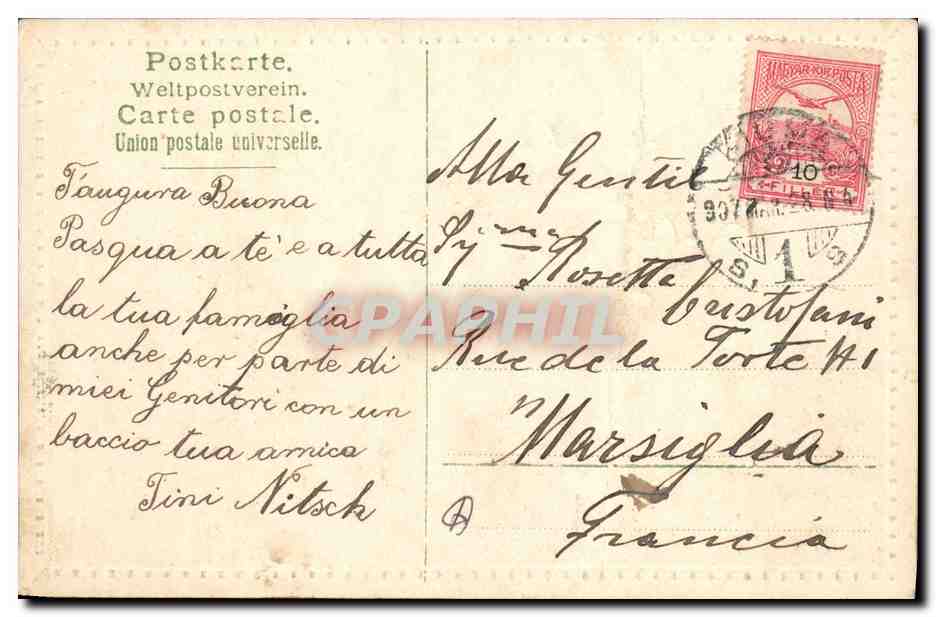 Postkarte.
Weltpostverein.
Carte postale.
Union postale universelle.
T'augura Buona
Pasqua a té e a tutta
la tua famiglia
anche per parte di
miei Genitori con un
baccio tua amica
Tini Nitsch
MAGYAR KIR. POSTA
10
FILLÉR
1
Alla Gentil
Rosetta
Cristofani
Rue de la
Marsiglia
Francia
CPAPHIL